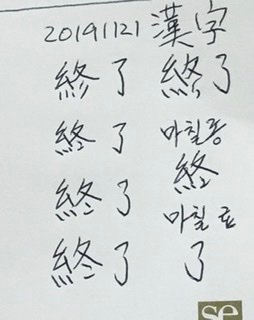 20191121 漢字
終了 終了
終了 마칠종
終
終了 마칠료
終了 了
se